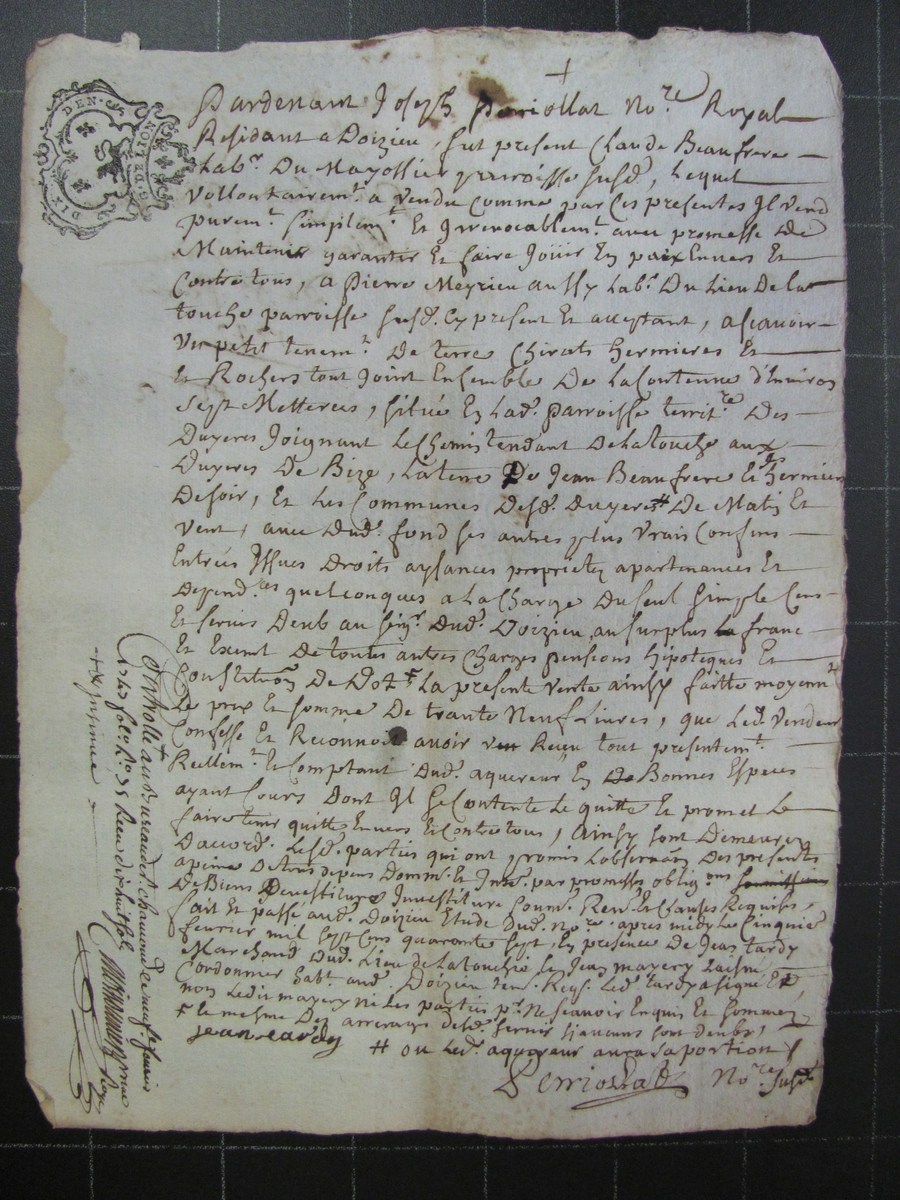 DIX DEN. G. DE LION
Pardevant Joseph Perriollat No.re Royal
Residant a Doizieu, fut present Claude Beaufrere
Lab.r Du Mayollier parroisse susd., Lequel
Vollontairem.t a Vendu comme par Ces presentes Il Vend
purem.t simplem.t Et Irrevocablem.t avec promesse De
Maintenir garantir Et faire Joüir En paix Envers Et
Contre tous, a Pierre Meyrieu aussy Lab.r Du Lieu De La
touche parroisse susd. Cy present Et acceptant, ascavoir
Un petit tenem.t De terre Chirats hermieres Et
Et Rochers tout Joint Ensemble De La Contenue d'Environ
Sept Metterees, situé En Lad. Parroisse territ.re Des
Duyeres Joignant Le Chemin tendant De La touche aux
Duyeres De Bize, La terre De Jean Beaufrere Et hermieres
De soir, Et Les Communes Desd. Duyeres # De Matin Et
Vent, avec Dud. fond ses autres plus Vrais Confins
Entrées Issues Droits aysances proprietez apartenances Et
Depend.ces quelconques a La Charge Du seul simple Cens
Et servis Deub au seig.r Dud. Doizieu, au surplus franc
Et Exempt De toutes autres Charges pensions hipoteques Et
Constituõn De Dot + La presente Vente ainsy faitte moyenn.t
Le prix Et somme De trante Neuf Livres, que Led. Vendeur
Confesse Et Reconnoit avoir Receu tout presentem.t
Reellem.t Et Comptant Dud. aquereur En De Bonnes Especes
ayant Cours Dont Il se Contente Le quitte Et promet Le
faire tenir quitte Envers Et Contre tous, ainsy sont Demeurez
D'accord Lesd. partis qui ont promis L'observaõn Des presentes
a peine De tous depens Domm. Et Int. par promesses oblig.ons
De Biens Devestiture Investiture soum. Ren. Et Clauses Requises,
fait Et passé aud. Doizieu Etude Dud. No.re apres midy Le Cinquie
fevrier mil sept Cens quarante sept, En presence De Jean tardy
Marchand Dud. Lieu De La touche Et Jean mayery Laisné
Cordonnier hab.t aud. Doizieu tem. Req. Led. tardy a signé Et
non Ledit mayery ni Les partis p.r Ne scavoir Enquis Et sommez
+ Le mesme Des arrerages desd. servis sy aucuns sont deubs,
jean tardy
# ou Led. aquereur aura sa portion
Perriollat No.re susd.
Controllé au Bureau de S.t Chamond le neuf fevrier
Reçu dix huit sols